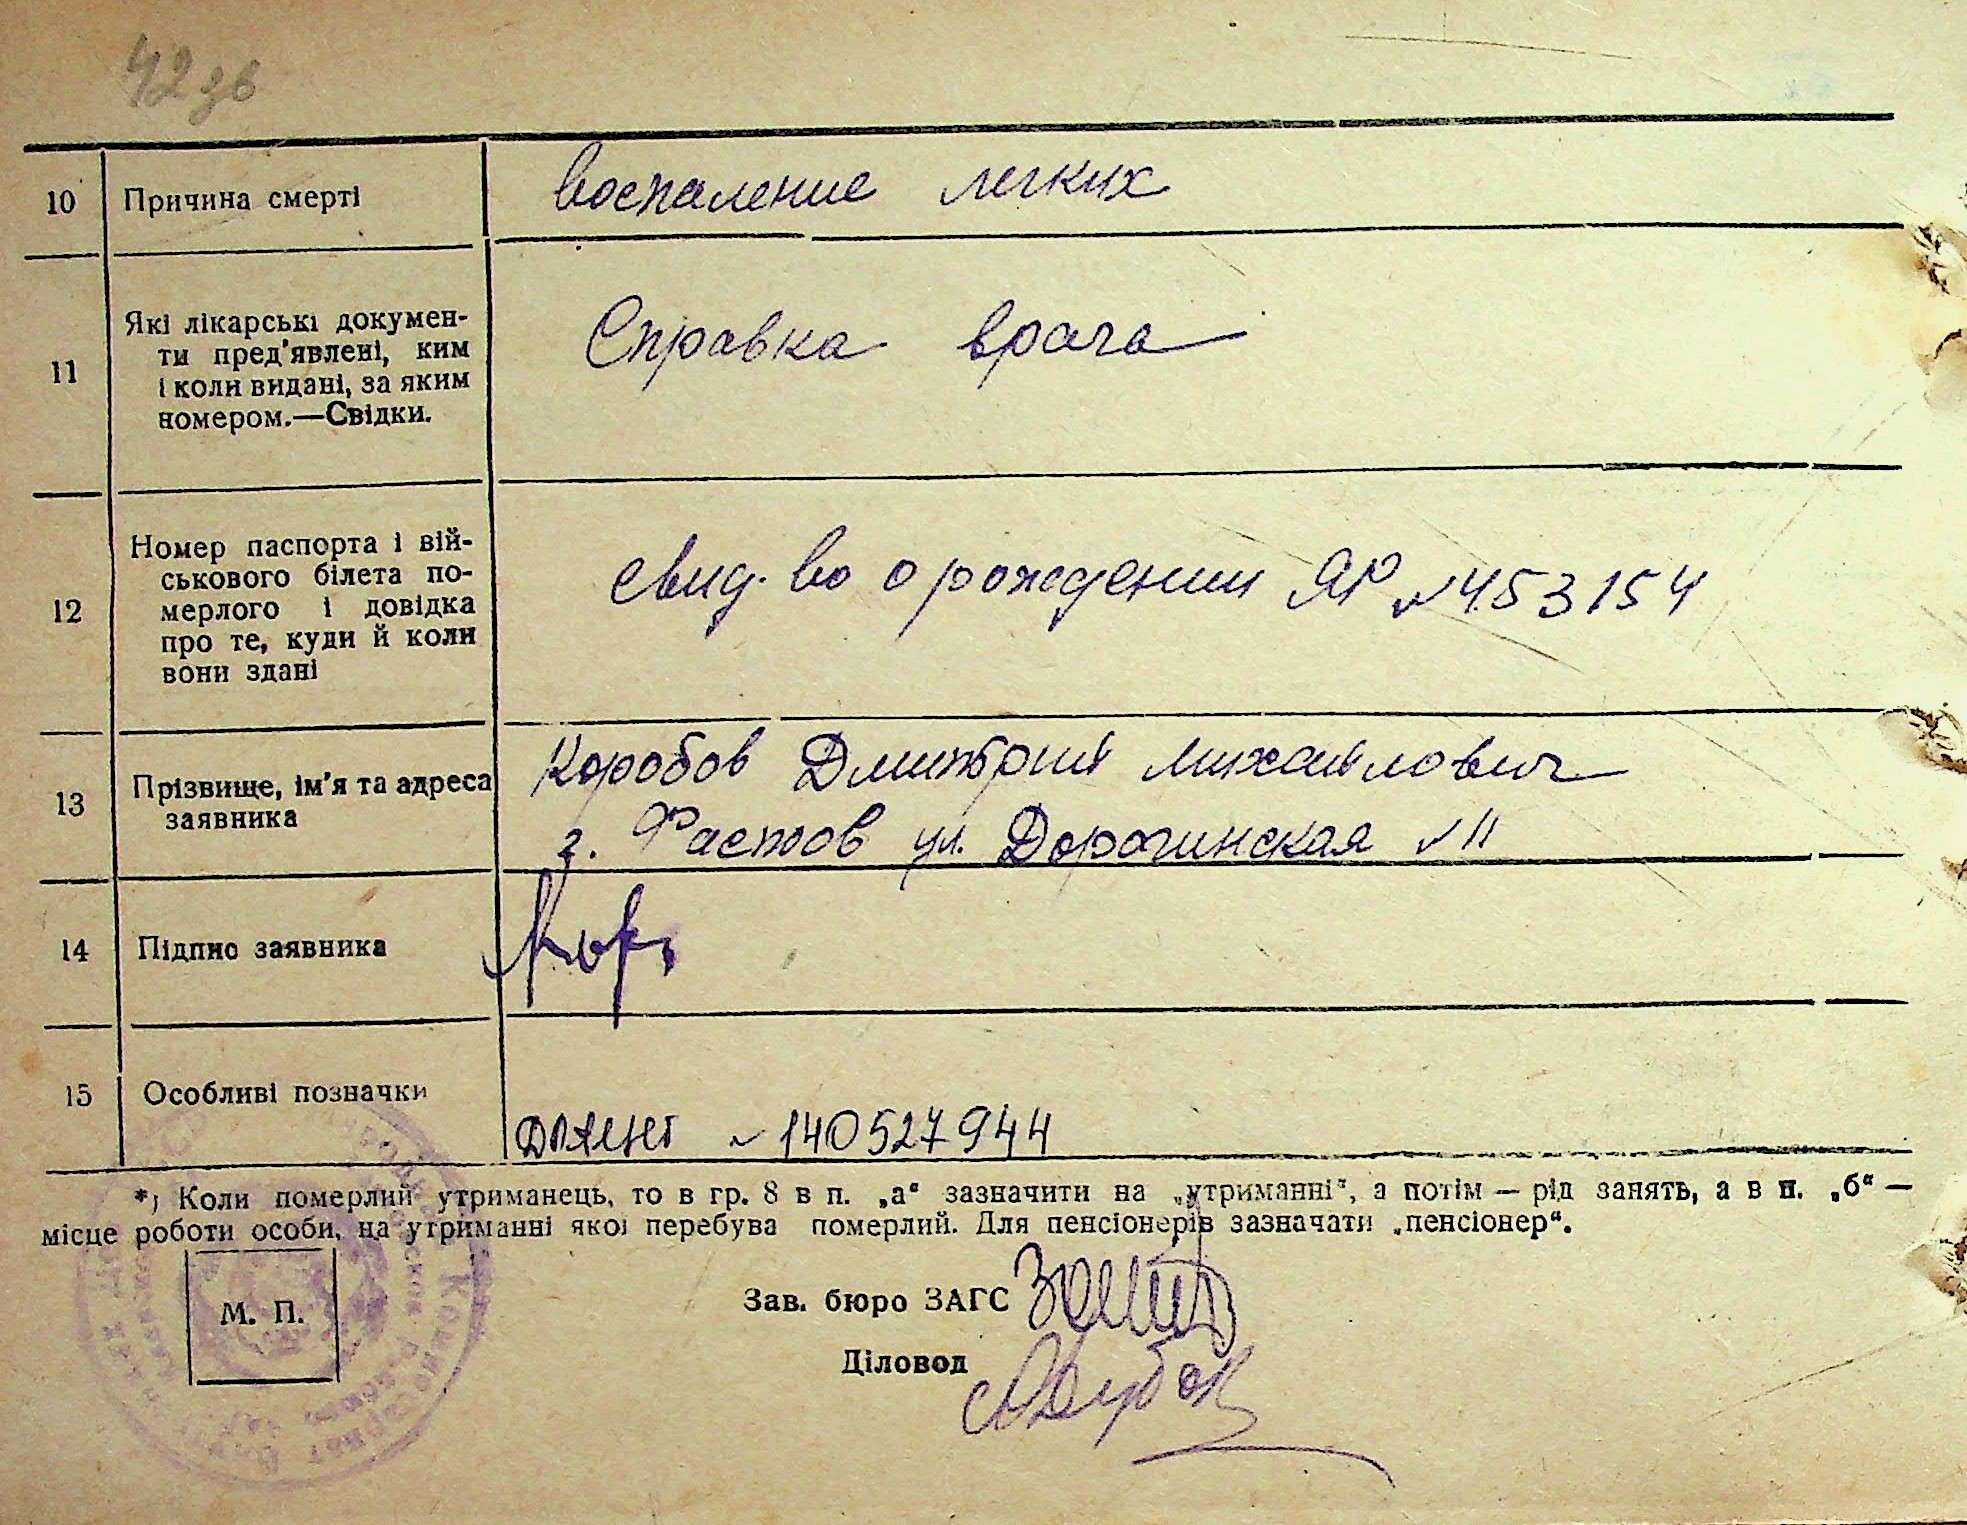 42 зв
10 Причина смерті воспаление легких
11 Які лікарські докумен-
ти пред'явлені, ким
і коли видані, за яким
номером.—Свідки.
Справка врача
12 Номер паспорта і вій-
ськового білета по-
мерлого і довідка
про те, куди й коли
вони здані
свид-во о рождении ЯР № 453154
13 Прізвище, ім'я та адреса
заявника
Коробов Дмитрий Михайлович
г. Фастов ул. Дорогинская № 11
14 Підпис заявника Кор
15 Особливі позначки
№ 140527944
*) Коли померлий утриманець, то в гр. 8 в п. „а“ зазначити на „утриманні“, а потім — рід занять, а в п. „б“ —
місце роботи особи, на утриманні якої перебува померлий. Для пенсіонерів зазначати „пенсіонер“.
М. П.
Зав. бюро ЗАГС
Діловод